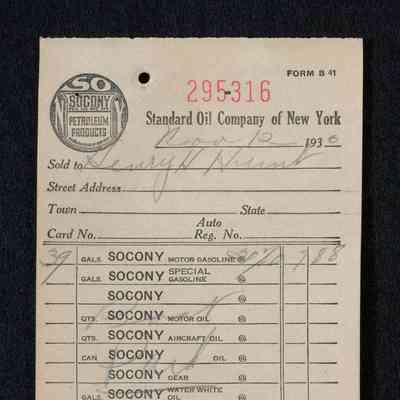 FORM B 41
295-316
SO
SOCONY
PETROLEUM
PRODUCTS
Standard Oil Company of New York
Nov 12 1930
Sold to Henry H
Street Address
Town State
Auto
Card No. Reg. No.
39 GALS. SOCONY MOTOR GASOLINE @ 7 88
GALS. SOCONY SPECIAL GASOLINE @
SOCONY @
QTS. SOCONY MOTOR OIL @
QTS. SOCONY AIRCRAFT OIL @
CAN SOCONY OIL @
SOCONY GEAR @
GALS. SOCONY WATER WHITE OIL @